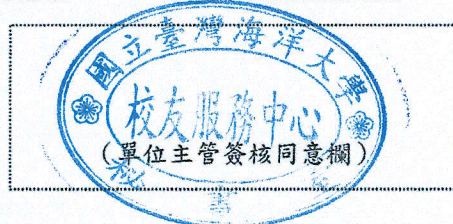 國立臺灣海洋大學
校友服務中心
(單位主管簽核同意欄)
秘書